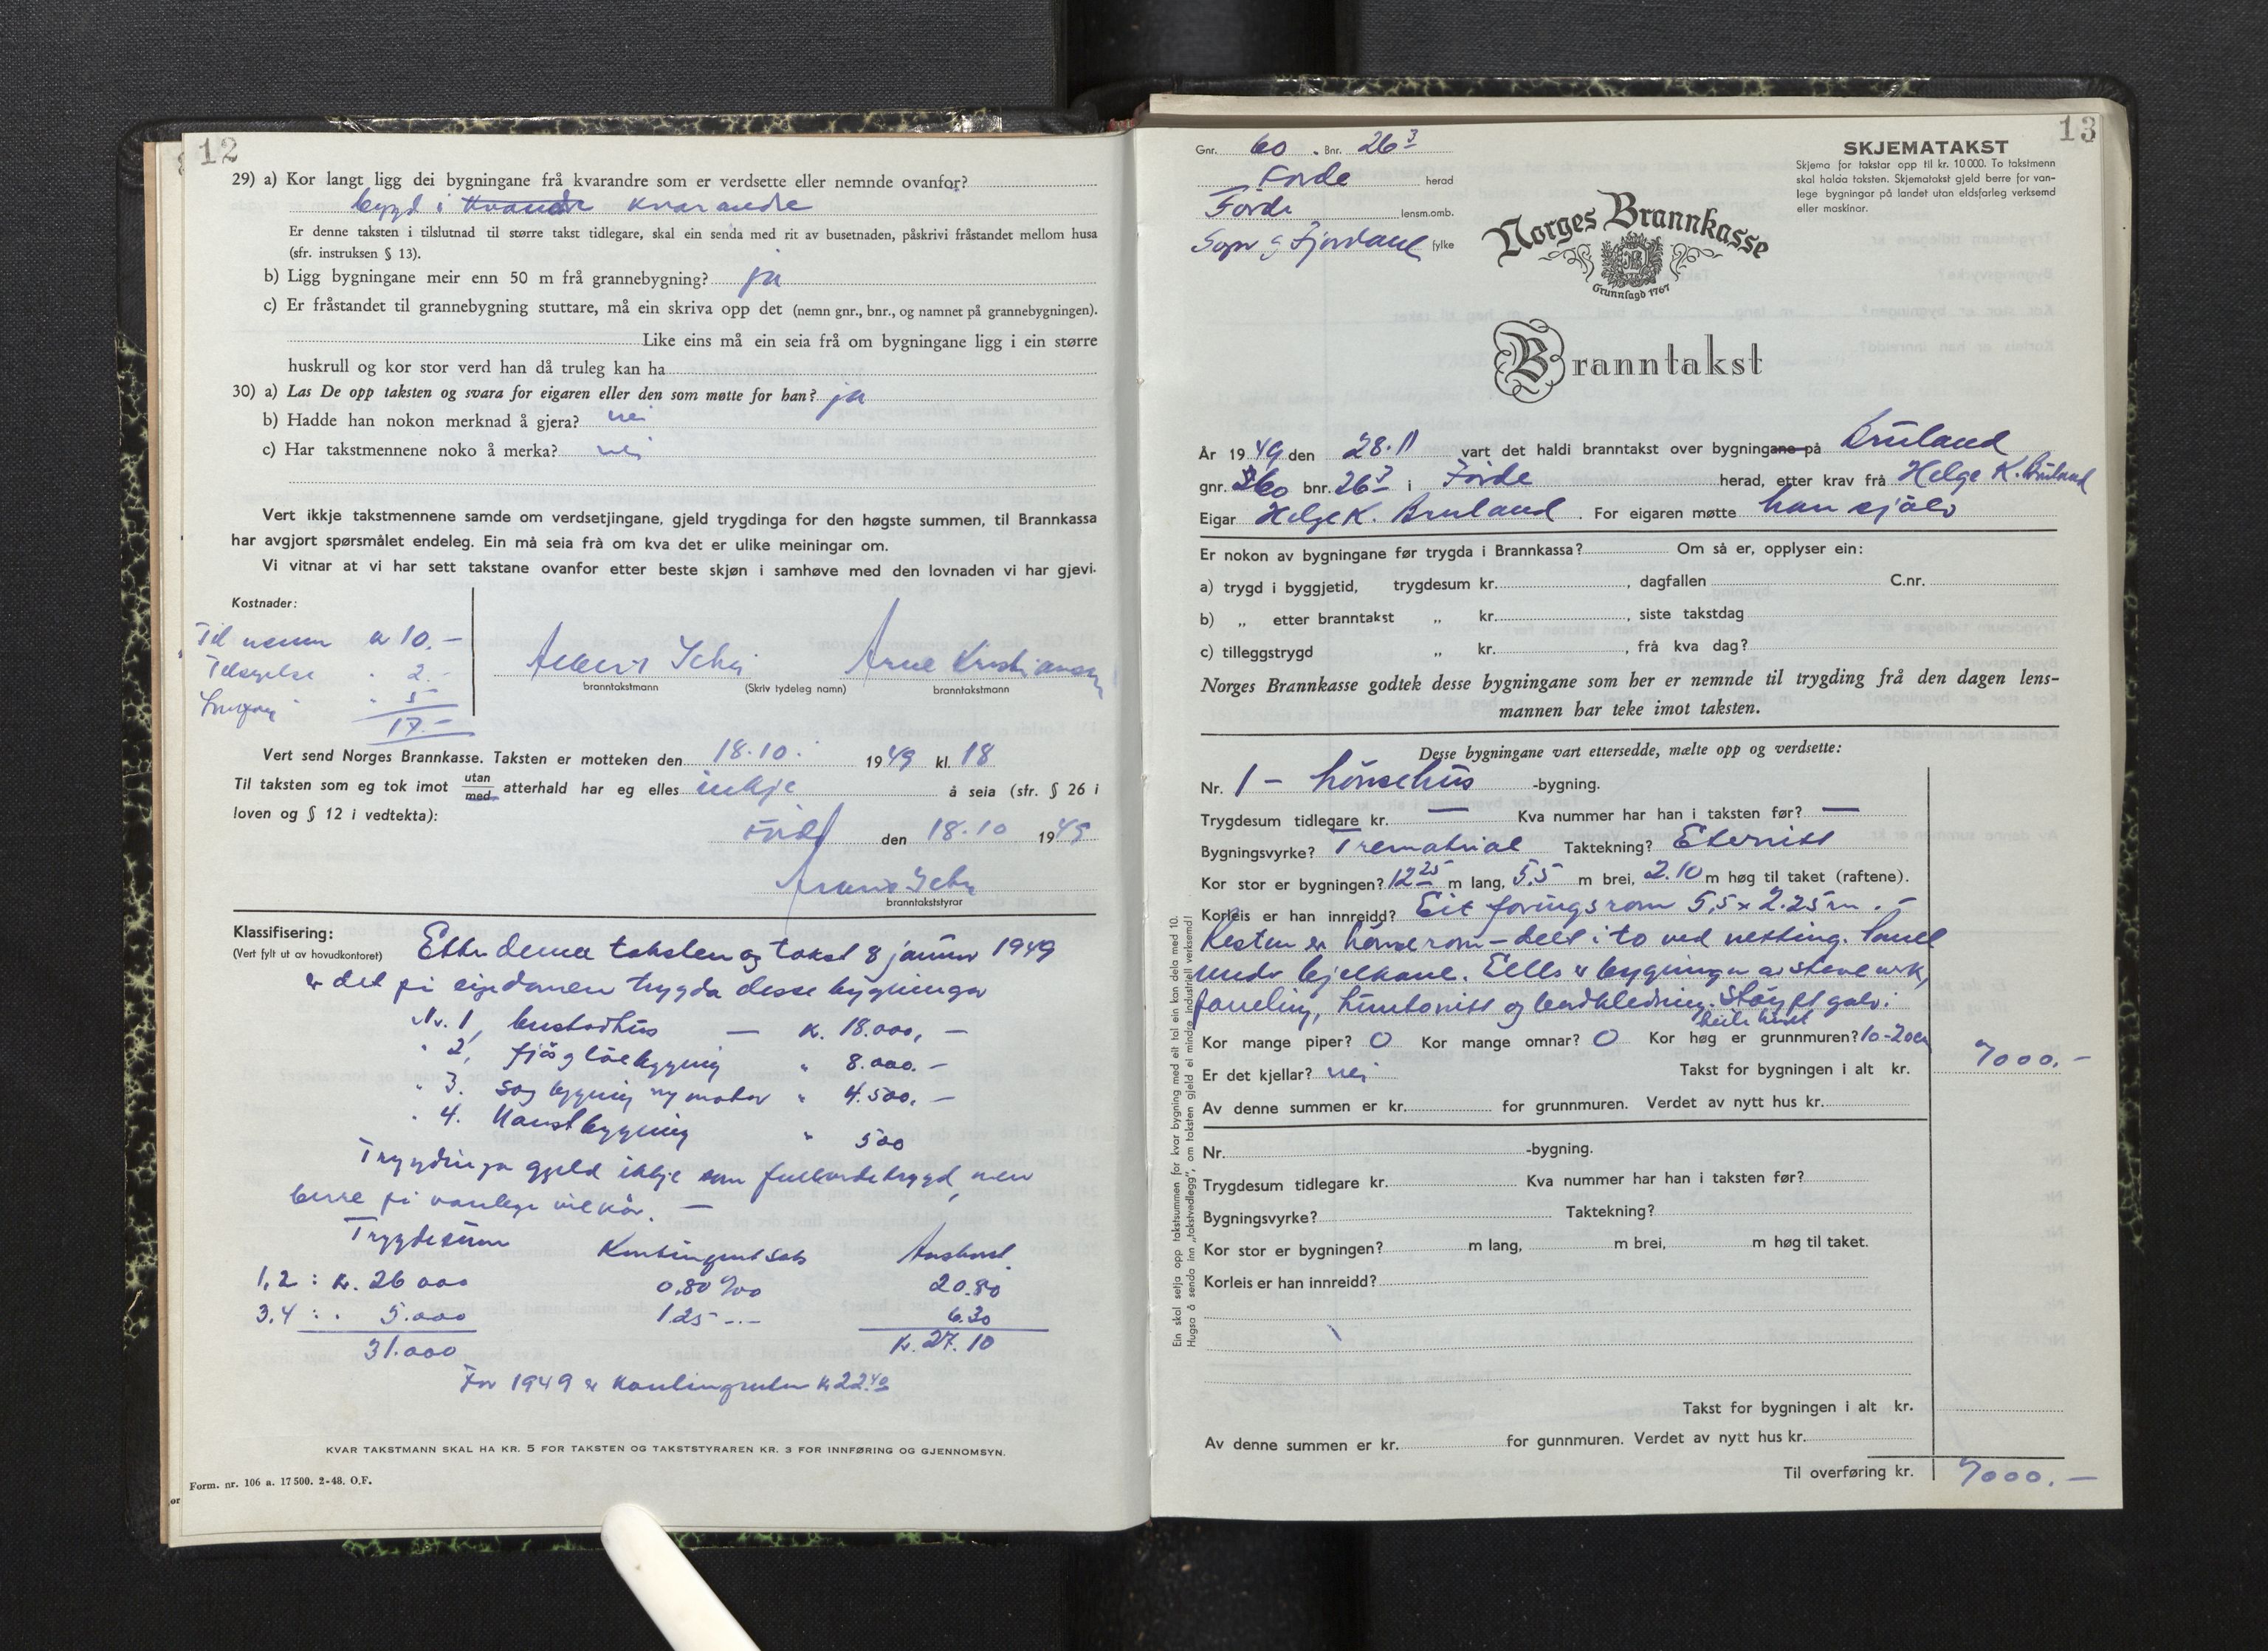 12
29) a) Kor langt ligg dei bygningane frå kvarandre som er verdsette eller nemnde ovanfor?
bygd i kvarandre
Er denne taksten i tilslutnad til større takst tidlegare, skal ein senda med rit av busetnaden, påskrivi fråstandet mellom husa
(sfr. instruksen § 13).
b) Ligg bygningane meir enn 50 m frå grannebygning? ja
c) Er fråstandet til grannebygning stuttare, må ein skriva opp det (nemn gnr., bnr., og namnet på grannebygningen).
Like eins må ein seia frå om bygningane ligg i ein større
huskrull og kor stor verd han då truleg kan ha
30) a) Las De opp taksten og svara for eigaren eller den som møtte for han? ja
b) Hadde han nokon merknad å gjera? nei
c) Har takstmennene noko å merka? nei
Vert ikkje takstmennene samde om verdsetjingane, gjeld trygdinga for den høgste summen, til Brannkassa
har avgjort spørsmålet endeleg. Ein må seia frå om kva det er ulike meiningar om.
Vi vitnar at vi har sett takstane ovanfor etter beste skjøn i samhøve med den lovnaden vi har gjevi.
Kostnader:
10.-
2.-
5
17.-
Arne Kristiansen
branntakstmann (Skriv tydeleg namn) branntakstmann
Vert send Norges Brannkasse. Taksten er motteken den 18.10. 1949 kl. 18
Til taksten som eg tok imot utan/med atterhald har eg elles inkje å seia (sfr. § 26 i
loven og § 12 i vedtekta):
Førde den 18.10 1949
branntakststyrar
Klassifisering:
(Vert fylt ut av hovudkontoret)
Etter denne taksten og takst 8 januar 1949
er det på eigedomen trygda desse bygningar
Nr. 1, bustadhus — kr. 18.000,-
" 2, fjøs og løebygning " 8.000.-
" 3. sagbygning m/motor " 4.500.-
" 4. Naustbygning " 500
Trygdinga gjeld ikkje som fullverdetrygd, men
berre på vanlege vilkår. —
Trygdesum Kontingentsats Årskont.
1,2 : kr. 26 000 0,80 ‰ 20.80
3.4 : " 5.000 1.25 -.- 6.30
31.000 kr. 27.10
For 1949 er kontingenten kr 22.40
KVAR TAKSTMANN SKAL HA KR. 5 FOR TAKSTEN OG TAKSTSTYRAREN KR. 3 FOR INNFØRING OG GJENNOMSYN.
Form. nr. 106 a. 17 500. 2-48. O.F.
13
Gnr. 60 . Bnr. 26 3
Førde herad
Førde lensm.omb.
Sogn og Fjordane fylke
SKJEMATAKST
Skjema for takstar opp til kr. 10 000. To takstmenn
skal halda taksten. Skjematakst gjeld berre for van-
lege bygningar på landet utan eldsfarleg verksemd
eller maskinar.
Norges Brannkasse
Grunnlagd 1767
Branntakst
År 1949 den 28.11 vart det haldi branntakst over bygningane på Bruland
gnr. 60 bnr. 26 3 i Førde herad, etter krav frå Helge K. Bruland
Eigar Helge K. Bruland . For eigaren møtte han sjølv
Er nokon av bygningane før trygda i Brannkassa? Om så er, opplyser ein:
a) trygd i byggjetid, trygdesum kr. , dagfallen C.nr.
b) „ etter branntakst „ kr. , siste takstdag
c) tilleggstrygd „ kr. , frå kva dag?
Norges Brannkasse godtek desse bygningane som her er nemnde til trygding frå den dagen lens-
mannen har teke imot taksten.
Desse bygningane vart ettersedde, mælte opp og verdsette:
Nr. 1 - hønsehus -bygning.
Trygdesum tidlegare kr. — Kva nummer har han i taksten før? —
Bygningsvyrke? Trematerial Taktekning? Eternitt
Kor stor er bygningen? 12 25 m lang, 5,5 m brei, 2.10 m høg til taket (raftene).
Korleis er han innreidd? Eit foringsrom 5,5 x 2.25 m. -
Resten er hønserom - delt i to ved netting. Panel
under bjelkane. Ells er bygningen av stenderverk,
paneling, huntonitt og bordkledning. Støypt golv i
heile huset
Kor mange piper? 0 Kor mange omnar? 0 Kor høg er grunnmuren? 10-20cm
Er det kjellar? nei Takst for bygningen i alt kr. 7000.-
Av denne summen er kr. for grunnmuren. Verdet av nytt hus kr.
Nr. -bygning.
Trygdesum tidlegare kr. Kva nummer har han i taksten før?
Bygningsvyrke? Taktekning?
Kor stor er bygningen? m lang, m brei, m høg til taket.
Korleis er han innreidd?
Takst for bygningen i alt kr.
Av denne summen er kr. for gunnmuren. Verdet av nytt hus kr.
Til overføring kr. 7000.-
Ein skal setja opp takstsummen for kvar bygning med eit tal ein kan dela med 10.
Hugsa å senda inn „takstvedlegg", om taksten gjeld ei mindre industriell verksemd!